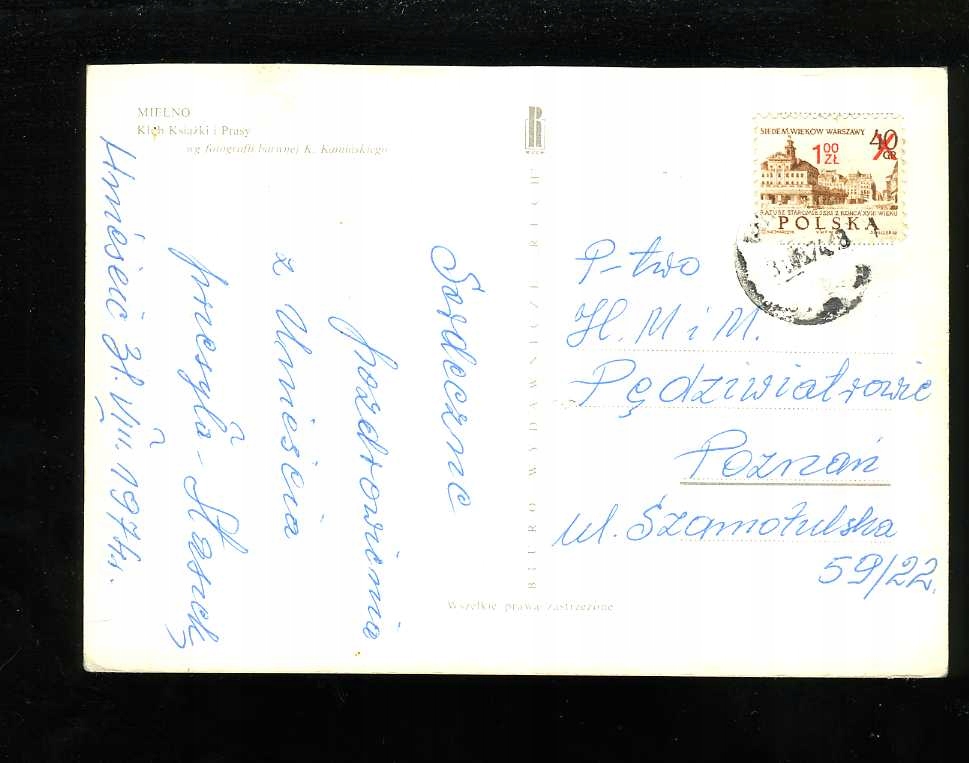 MIELNO
Klub Książki i Prasy
wg fotografii barwnej K. Kamińskiego
Serdeczne
pozdrowienia
z Unieścia
przesyła-Staszek
Unieście 31.VII.1974r.
BIURO WYDAWNICZE RUCH
Wszelkie prawa zastrzeżone
SIEDEM WIEKÓW WARSZAWY
40
GR
1 00
ZŁ
RATUSZ STAROMIEJSKI Z KOŃCA XVIII WIEKU
POLSKA
P-two
H. M i M.
Pędziwiatrowie
Poznań
ul. Szamotulska
59/22.